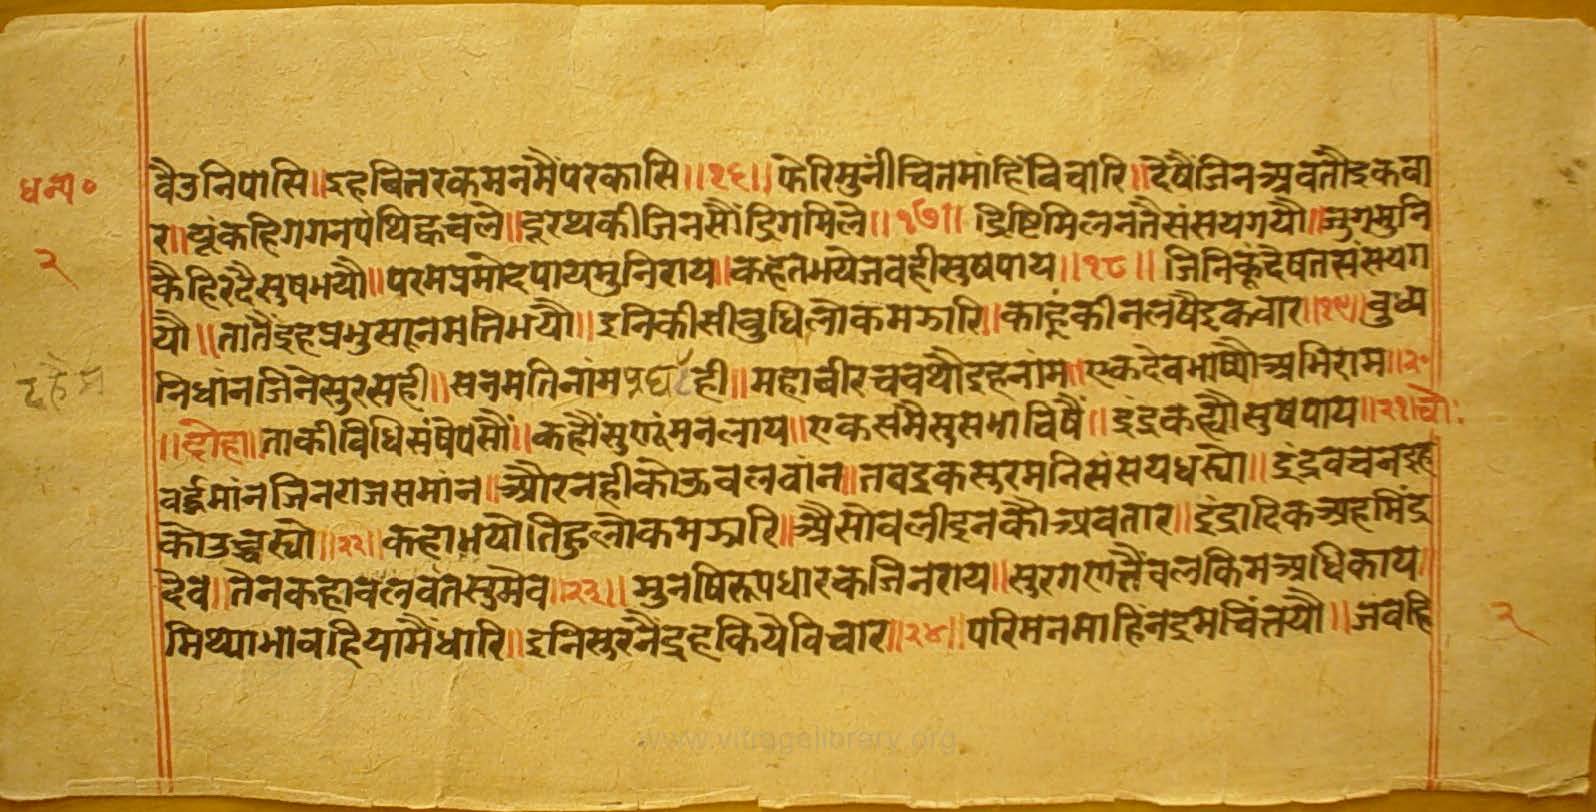 धन्य॰
२
वैउनिपासि॥इहबितरकमनमैंपरकासि॥१६॥फेरिमुंनीचितमांहिंविचारि॥देषैंजिनअवतौइकवा
र॥यूंकहिगगनपंथिह्वचले॥दूरथकीजिनसौंद्रिगमिले॥१७॥द्रिष्टिमिलनतैसंसयगयौ॥जुगमुनि
कैहिरदैसुषभयौ॥परमप्रमोदपायमुनिराय॥कहतभयेजवहीसुषपाय॥१८॥जिनिकूंदेषतसंसयग
यौ॥तातैंइहप्रभुसानमतिभयौ॥इनिकीसीबुधिलोकमझारि॥काहूंकीनलषैइकवार॥१९॥वुध्य
निधांनजिनेसुरसही॥सनमतिनांमप्रघटही॥महावीरचवथौइहनांम॥एकदेवभाष्यौअभिराम॥२०
॥दोहा॥ताकीविधिसंषेपसौं॥कह्यौंसुणंमनलाय॥एकसमैसुसभाविषैं॥इंद्रकह्यौसुषपाय॥२१॥चौ:
वर्द्धमांनजिनराजसमांन॥औरनहीकौऊवलवांन॥तवइकसुरमनिसंसयधस्यो॥इंद्रवचनइह
कोउच्चस्यो॥२२॥कहाभयौतिहुलोकमझारि॥ऐसोवलीइनकौअवतार॥इंद्रादिकअहमिंद्र
देव॥तेनकहावलवंतसुमेव॥२३॥मुनषिरूपधारकजिनराय॥सुरगणतैंवलकिमअधिकाय॥
मिथ्याभावहियामैंधारि॥इनिसुरनैंइहकियेविचार॥२४॥परिमनमाहिंनइमचिंतयौ॥जंवहि
२
www.vitragelibrary.org